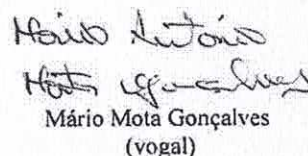 Mário António
Mota Gonçalves
Mário Mota Gonçalves
(vogal)